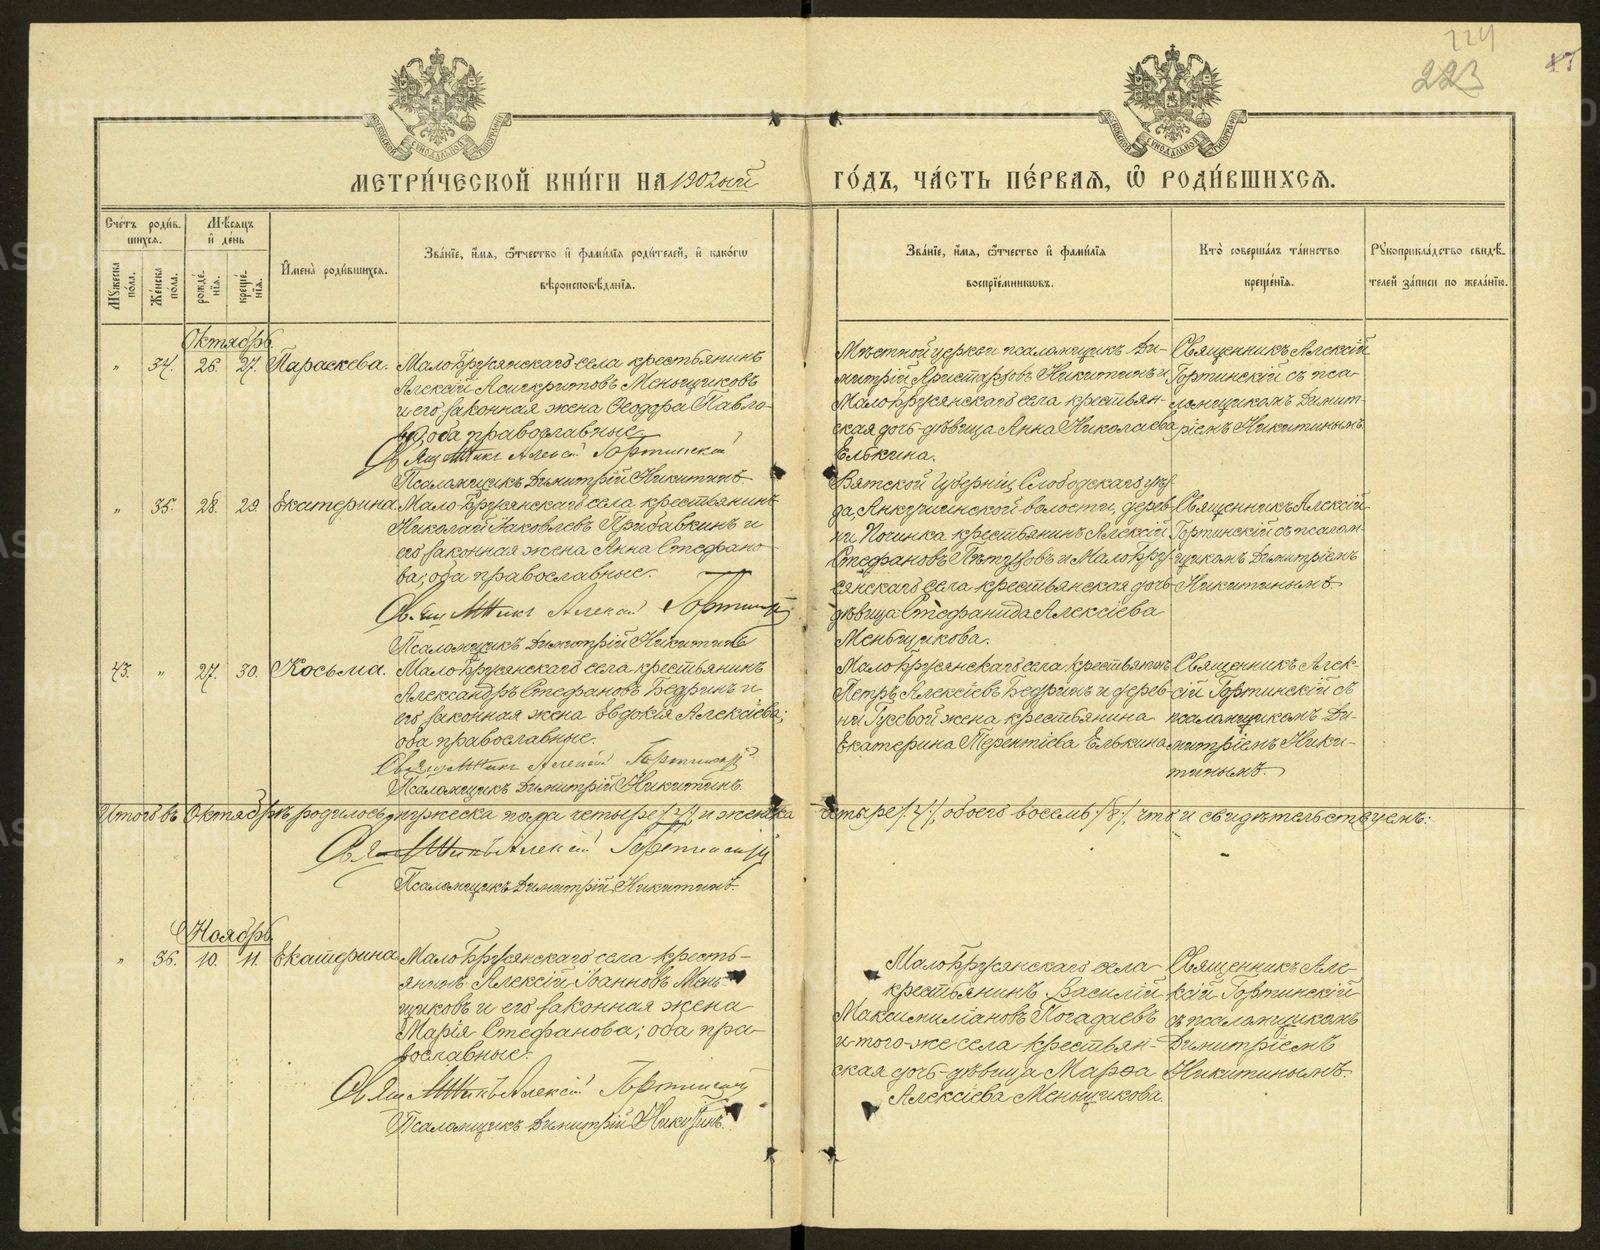 224
223
МЕТРИ́ЧЕСКОЙ КНИ́ГИ НА 1902ый ГО́ДЪ, ЧА́СТЬ ПЕ́РВАЯ, Ѽ РОДИ́ВШИХСЯ.
Сче́тъ роди́вшихся.
Мѣ́сяцъ и҆ де́нь
Му́жеска по́ла.
Же́нска по́ла.
рожде́нїя.
креще́нїя.
И҆мена̀ роди́вшихся.
Зва́нїе, и҆́мя, ѻ҆́тчество и҆ фами́лїя роди́телей, и҆ како́гѡ вѣроисповѣ́данїя.
Зва́нїе, и҆́мя, ѻ҆́тчество и҆ фами́лїя воспрїе́мникѡвъ.
Кто̀ соверша́лъ та́инство креще́нїя.
Рукоприкла́дство свидѣ́телей за́писи по жела́нїю.
Октябрь
" 34. 26. 27. Параскева.
Мало-Брусянскаго села крестьянинъ
Алексій Асигкритовъ Меньщиковъ
и его законная жена Ѳеодора Павло-
ва, оба православные
Священникъ Алексій Гортинскій
Псаломщикъ Димитрій Никитинъ
Мѣстной церкви псаломщикъ Ди-
митрій Аристарховъ Никитинъ и
Мало-Брусянскаго села крестьян-
ская дочь-дѣвица Анна Николаева
Елькина.
Священникъ Алексій
Гортинскій съ пса-
ломщикомъ Димит-
ріемъ Никитинымъ
" 35. 28. 29. Екатерина
Мало-Брусянскаго села крестьянинъ
Николай Іаковлевъ Прибавкинъ и
его законная жена Анна Стефано-
ва; оба православные.
Священникъ Алексій Гортинскій
Псаломщикъ Димитрій Никитинъ
Вятской Губерніи, Слободскаго уѣз-
да, Анкушинской волости, дерев-
ни Починка крестьянинъ Алексій
Стефановъ Пѣтуховъ и Мало-Бру-
сянскаго села крестьянская дочь
дѣвица Стефанида Алексіева
Меньщикова.
Священникъ Алексій
Гортинскій съ псалом-
щикомъ Димитріемъ
Никитинымъ
43. " 27. 30. Косьма.
Мало-Брусянскаго села крестьянинъ
Александръ Стефановъ Бедринъ и
его законная жена Евдокія Алексіева;
оба православные.
Священникъ Алексій Гортинскій
Псаломщикъ Димитрій Никитинъ
Мало-Брусянскаго села крестьянинъ
Петръ Алексіевъ Бедринъ и дерев-
ни Гусевой жена крестьянина
Екатерина Терентіева Елькина
Священникъ Алек-
сій Гортинскій съ
псаломщикомъ Ди-
митріемъ Ники-
тинымъ.
Итого въ Октябрѣ родилось мужеска пола четыре /4/, и женска четыре /4/, обоего восемь /8/, что и свидѣтельствуемъ:
Священникъ Алексій Гортинскій
Псаломщикъ Димитрій Никитинъ.
Ноябрь
" 36. 10. 11. Екатерина
Мало-Брусянскаго села кресть-
янинъ Алексій Іоанновъ Мень-
щиковъ и его законная жена
Марія Стефанова; оба пра-
вославные.
Священникъ Алексій Гортинскій
Псаломщикъ Димитрій Никитинъ.
Мало-Брусянскаго села
крестьянинъ Василій
Максимиліановъ Погадаевъ
и того-же села крестьян-
ская дочь-дѣвица Марѳа
Алексіева Меньщикова.
Священникъ Але-
ксій Гортинскій
съ псаломщикомъ
Димитріемъ
Никитинымъ.